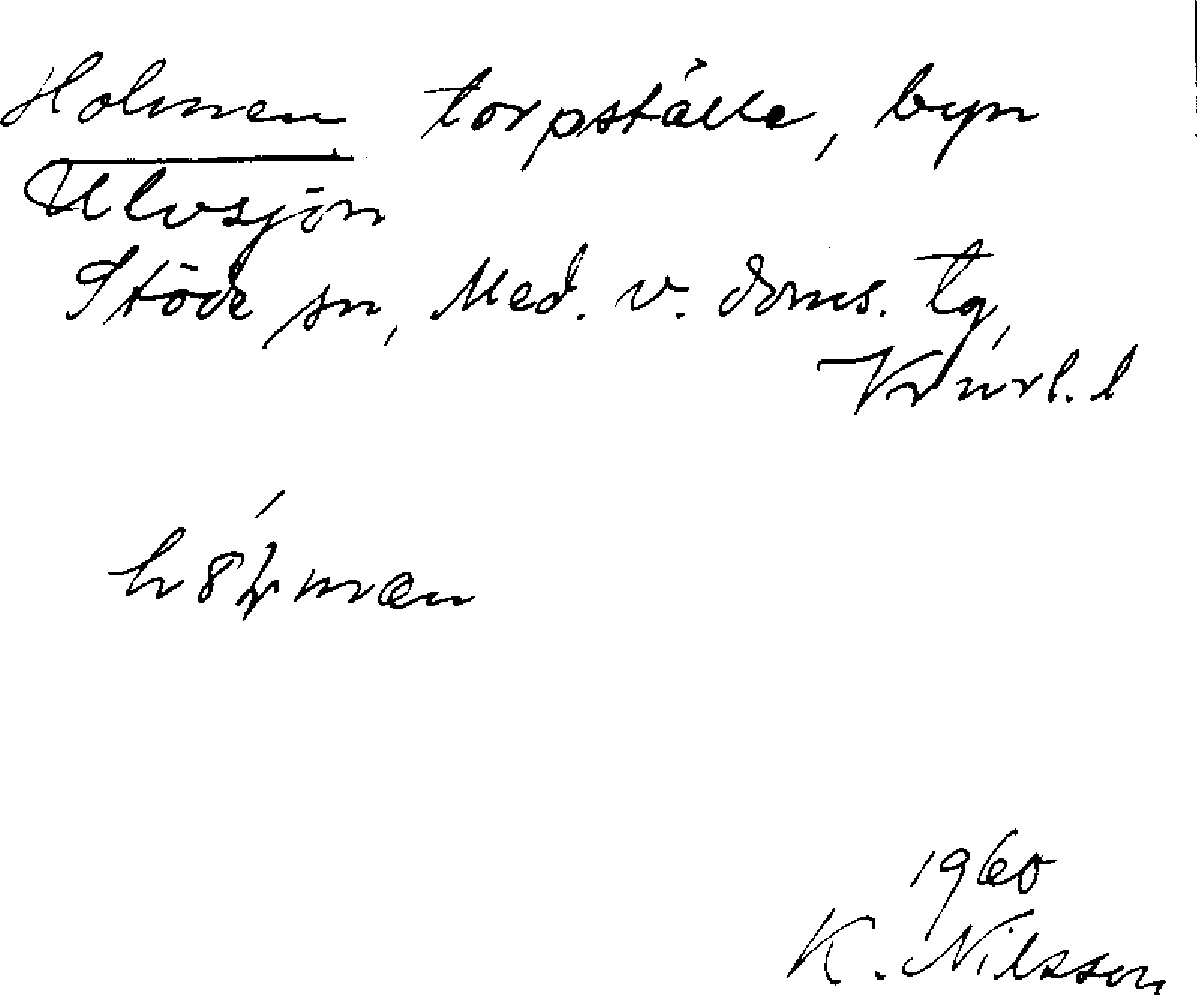 Holmen torpställe, byn
Ulvsjön
Stöde sn, Med. v. doms. tg,
Vrnrl. l
1960
K. Nilsson